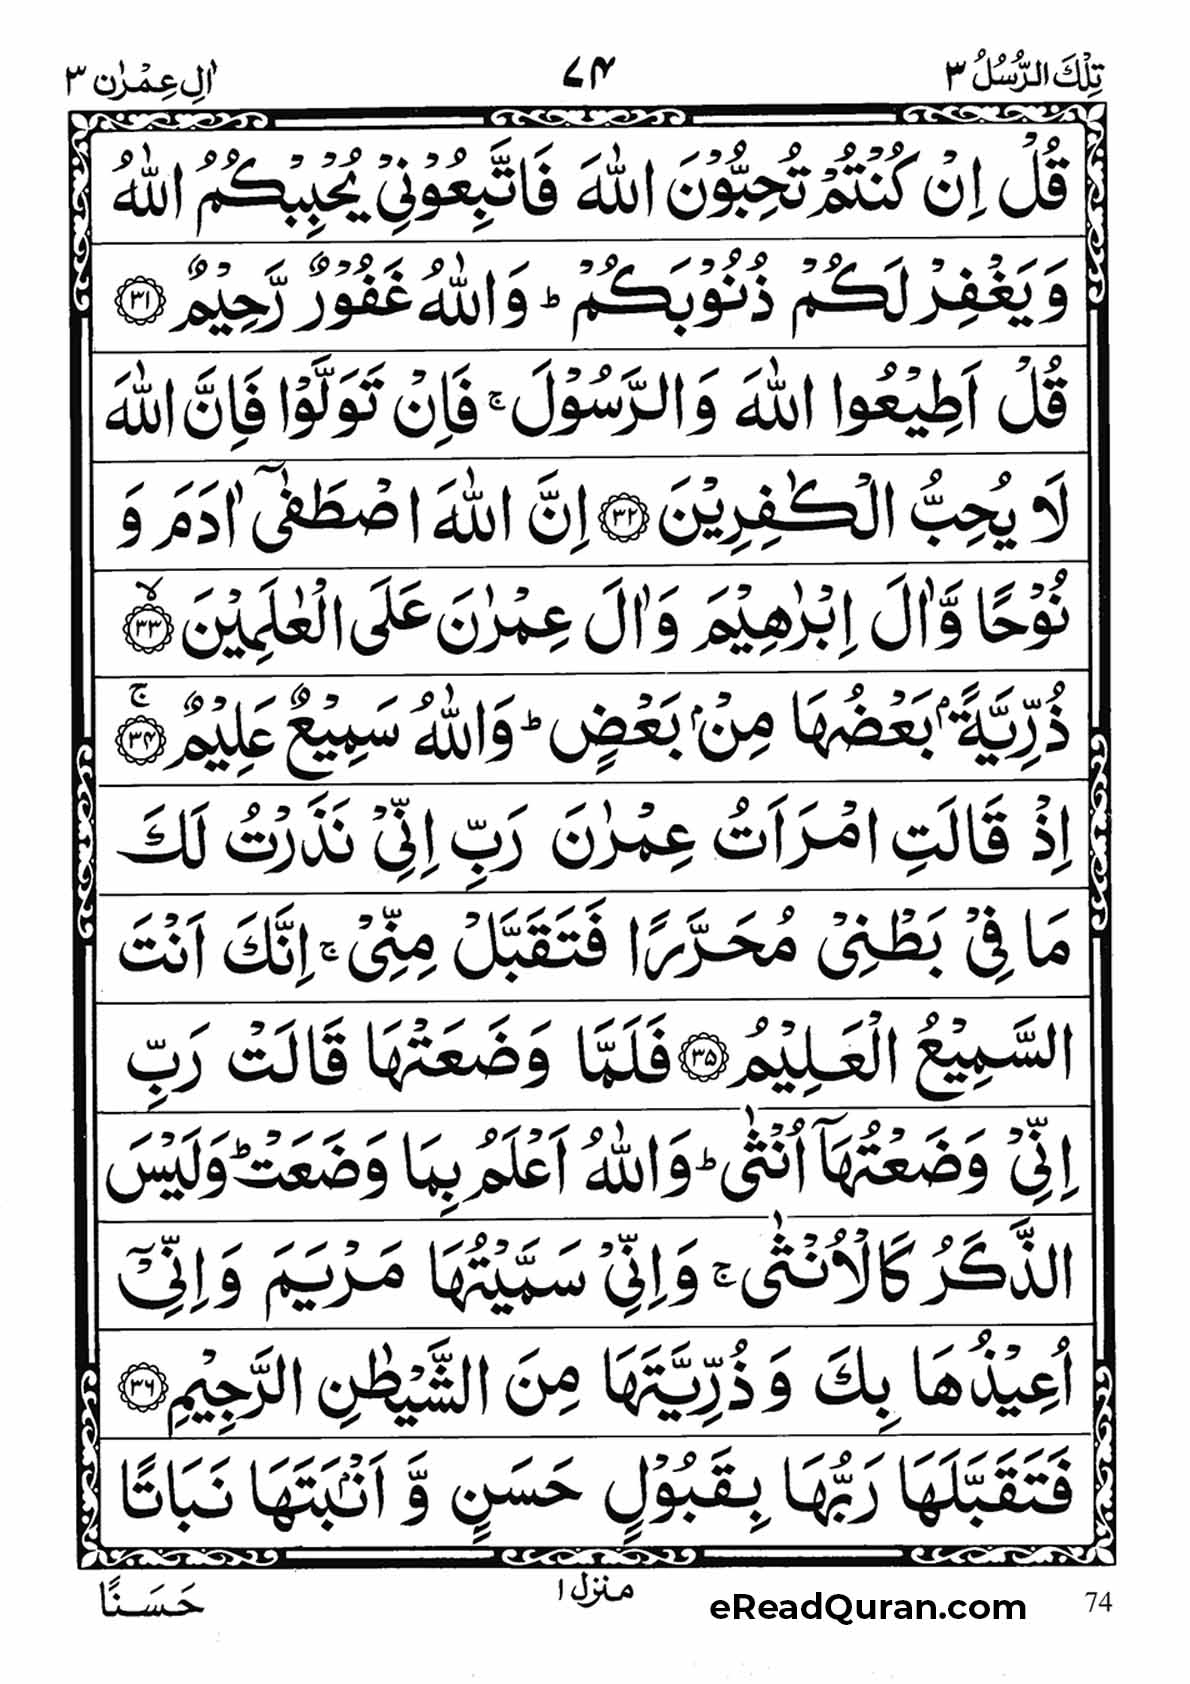 تِلْكَ الرُّسُلُ ٣
٧٤
اٰلِ عِمْرٰن ٣
قُلْ اِنْ كُنْتُمْ تُحِبُّوْنَ اللّٰهَ فَاتَّبِعُوْنِيْ يُحْبِبْكُمُ اللّٰهُ
وَيَغْفِرْ لَكُمْ ذُنُوْبَكُمْ ؕ وَاللّٰهُ غَفُوْرٌ رَّحِيْمٌ ﴿٣١﴾
قُلْ اَطِيْعُوا اللّٰهَ وَالرَّسُوْلَ ۚ فَاِنْ تَوَلَّوْا فَاِنَّ اللّٰهَ
لَا يُحِبُّ الْكٰفِرِيْنَ ﴿٣٢﴾ اِنَّ اللّٰهَ اصْطَفٰٓى اٰدَمَ وَ
نُوْحًا وَّاٰلَ اِبْرٰهِيْمَ وَاٰلَ عِمْرٰنَ عَلَى الْعٰلَمِيْنَ ﴿٣٣﴾ ۙ
ذُرِّيَّةًۢ بَعْضُهَا مِنْۢ بَعْضٍ ؕ وَاللّٰهُ سَمِيْعٌ عَلِيْمٌ ﴿٣٤﴾ ۚ
اِذْ قَالَتِ امْرَاَتُ عِمْرٰنَ رَبِّ اِنِّيْ نَذَرْتُ لَكَ
مَا فِيْ بَطْنِيْ مُحَرَّرًا فَتَقَبَّلْ مِنِّيْ ۚ اِنَّكَ اَنْتَ
السَّمِيْعُ الْعَلِيْمُ ﴿٣٥﴾ فَلَمَّا وَضَعَتْهَا قَالَتْ رَبِّ
اِنِّيْ وَضَعْتُهَاۤ اُنْثٰى ؕ وَاللّٰهُ اَعْلَمُ بِمَا وَضَعَتْ ؕ وَلَيْسَ
الذَّكَرُ كَالْاُنْثٰى ۚ وَاِنِّيْ سَمَّيْتُهَا مَرْيَمَ وَاِنِّيْۤ
اُعِيْذُهَا بِكَ وَذُرِّيَّتَهَا مِنَ الشَّيْطٰنِ الرَّجِيْمِ ﴿٣٦﴾
فَتَقَبَّلَهَا رَبُّهَا بِقَبُوْلٍ حَسَنٍ وَّ اَنْۢبَتَهَا نَبَاتًا
حَسَنًا
منزل ١
eReadQuran.com
74